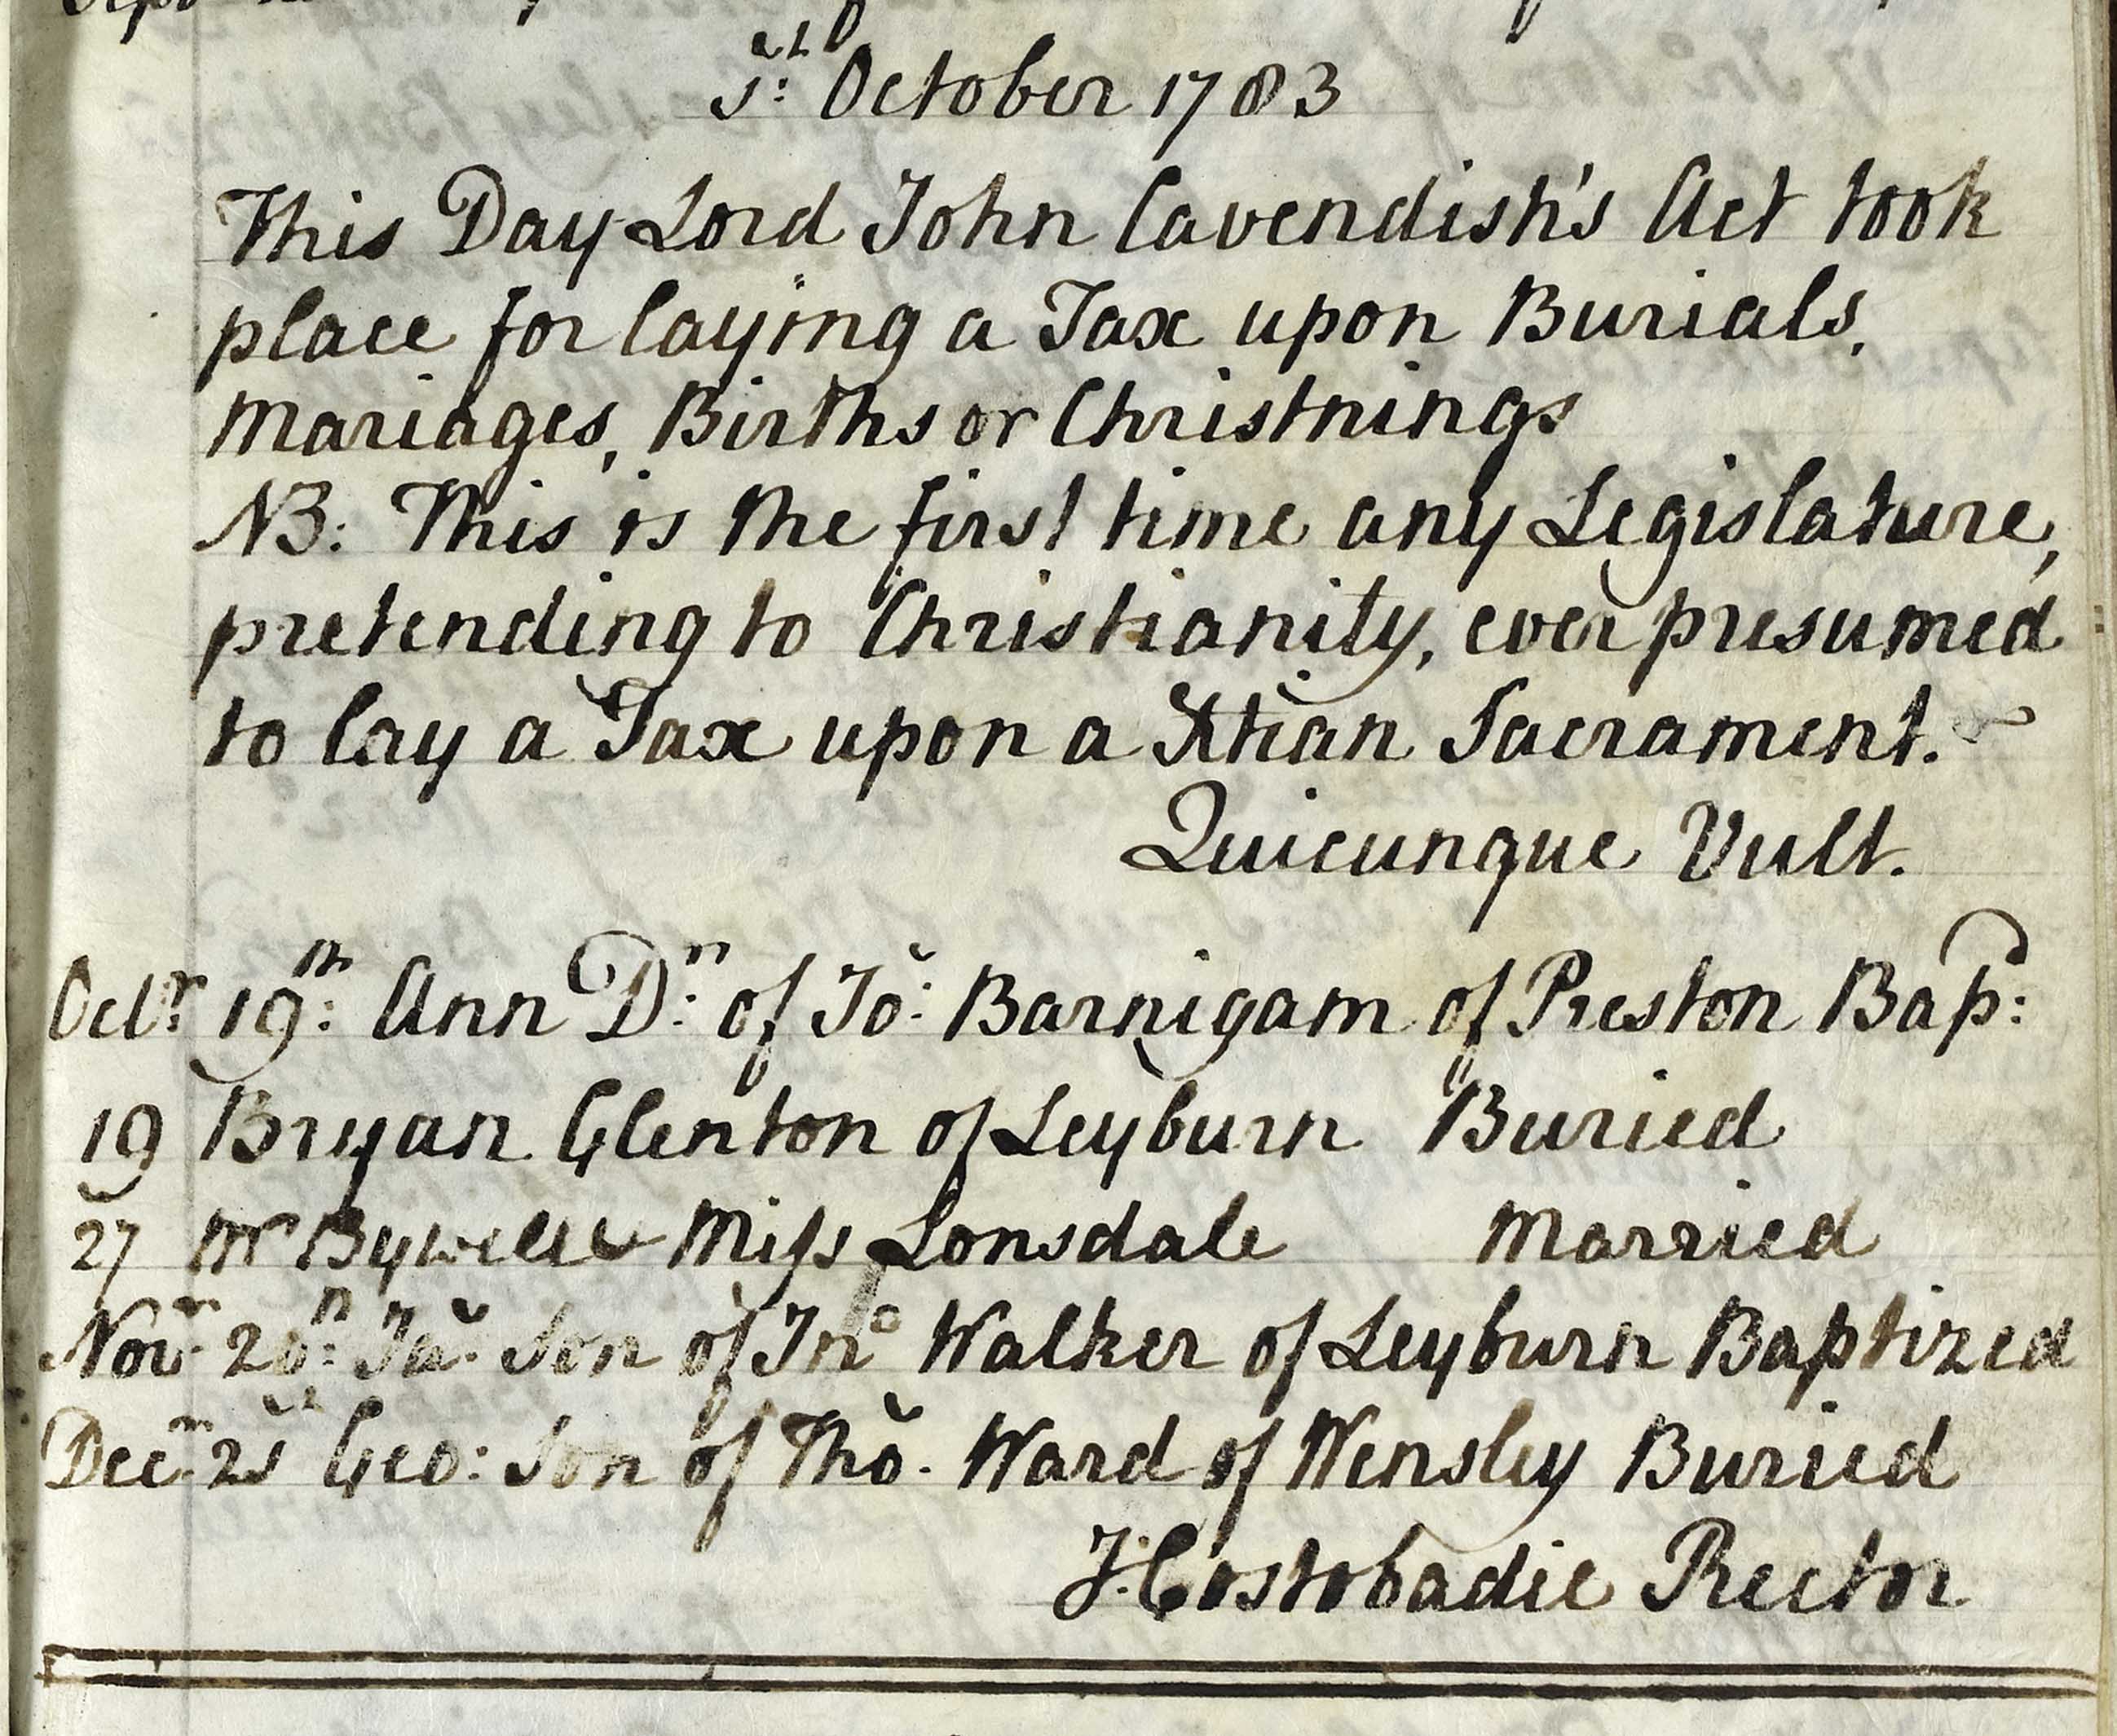 1st: October 1783
This Day Lord John Cavendish's Act took
place for laying a Tax upon Burials,
Mariages, Births or Christnings
NB: This is the first time any Legislature,
pretending to Christianity, ever presumed
to lay a Tax upon a Xtian Sacrament.
Quicunque Vult.
Octr: 19th: Ann Dr: of Jo: Barnigam of Preston Bap:
19 Bryan Glenton of Leyburn Buried
27 Mr Bywell Miss Lonsdale Married
Novr. 20th: Ja. Son of Jno Walker of Leyburn Baptized
Decr. 21st Geo: Son of Tho. Ward of Wensley Buried
J: Costobadie Rector